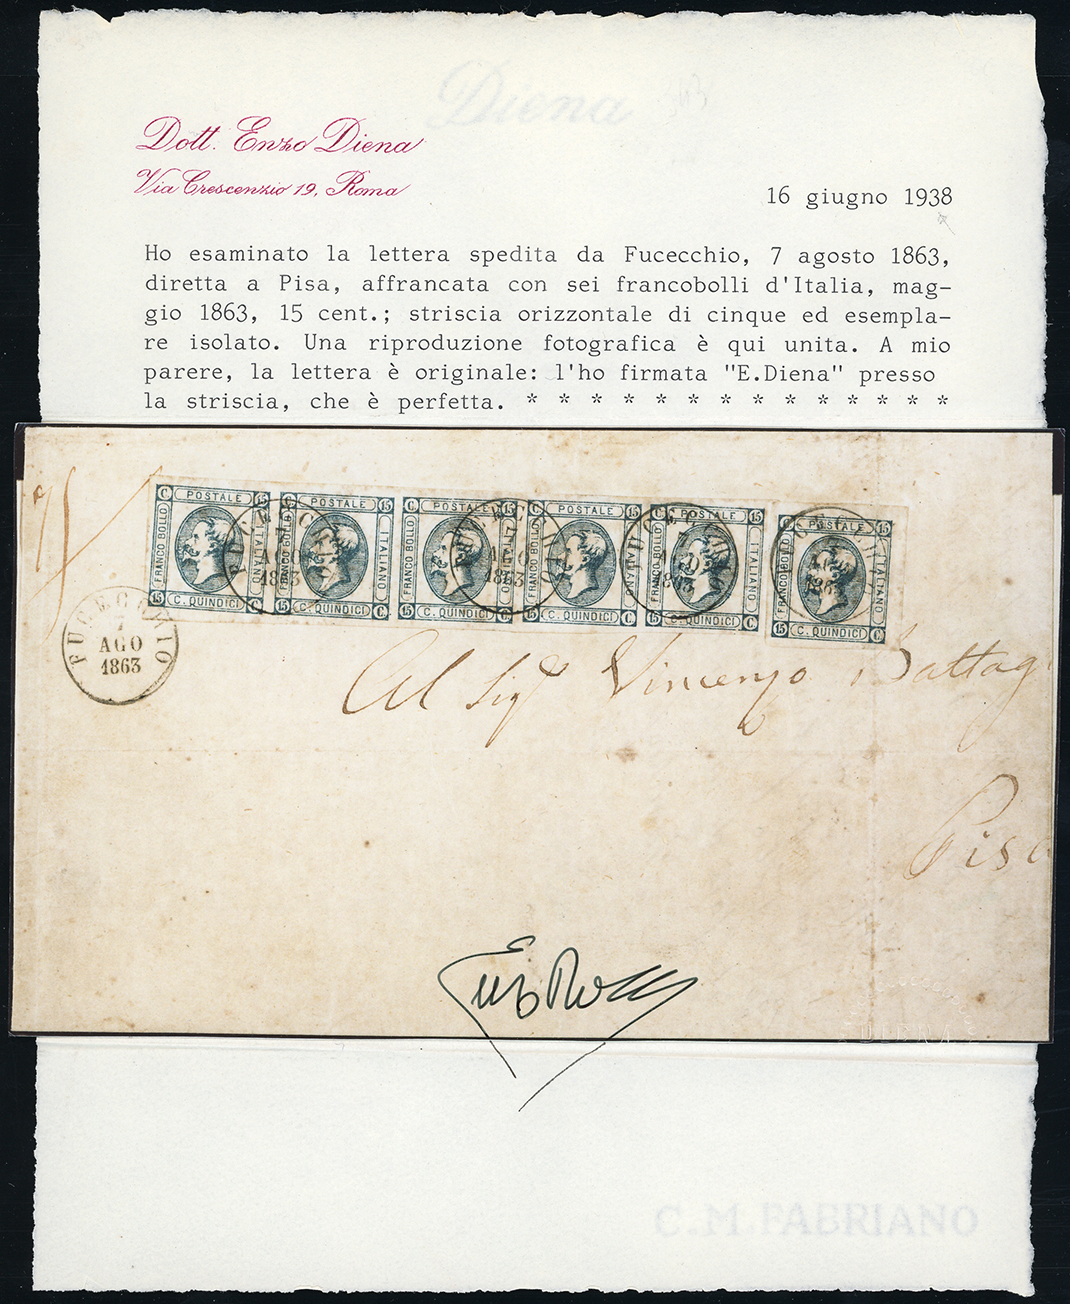 Diena
Dott. Enzo Diena
Via Crescenzio 19, Roma
16 giugno 1938
Ho esaminato la lettera spedita da Fucecchio, 7 agosto 1863,
diretta a Pisa, affrancata con sei francobolli d'Italia, mag-
gio 1863, 15 cent.; striscia orizzontale di cinque ed esempla-
re isolato. Una riproduzione fotografica è qui unita. A mio
parere, la lettera è originale: l'ho firmata "E.Diena" presso
la striscia, che è perfetta. * * * * * * * * * * * * * *
C POSTALE 15 FRANCO BOLLO ITALIANO 15 C. QUINDICI C
C POSTALE 15 FRANCO BOLLO ITALIANO 15 C. QUINDICI C
C POSTALE 15 FRANCO BOLLO ITALIANO 15 C. QUINDICI C
C POSTALE 15 FRANCO BOLLO ITALIANO 15 C. QUINDICI C
C POSTALE 15 FRANCO BOLLO ITALIANO 15 C. QUINDICI C
C POSTALE 15 FRANCO BOLLO ITALIANO 15 C. QUINDICI C
FUCECCHIO
7
AGO
1863
Al Sigr Vincenzo Battag
Pisa
DIENA
C.M.FABRIANO